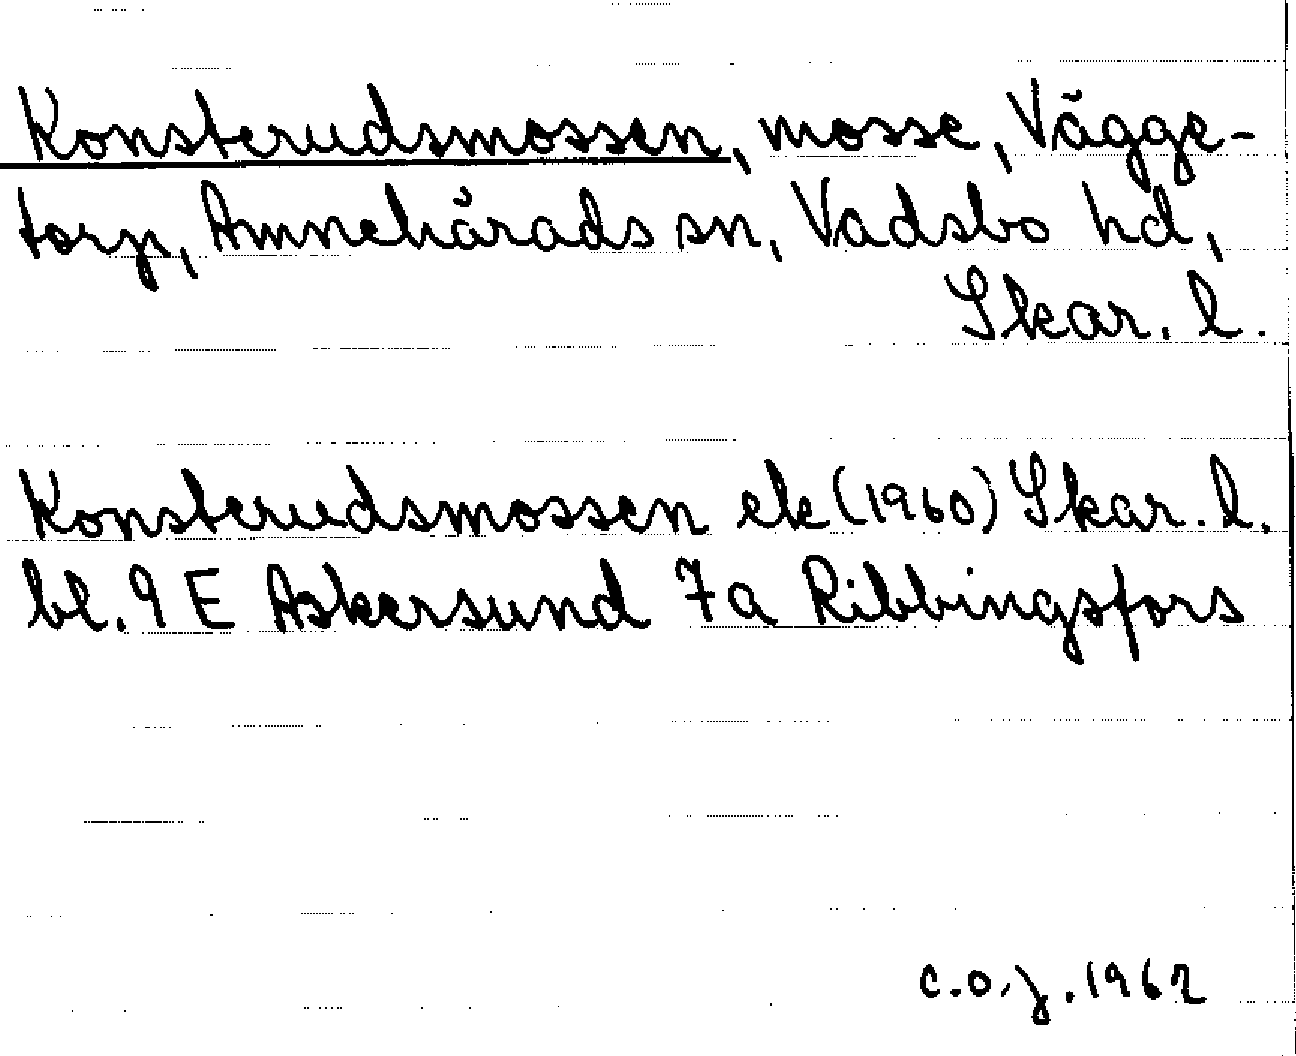 Konsterudsmossen, mosse, Vägge-
torp, Amnehärads sn, Vadsbo hd,
Skar. l.
Konsterudsmossen ek (1960) Skar. l.
bl. 9 E Askersund 7a Ribbingsfors
C.O.J. 1962